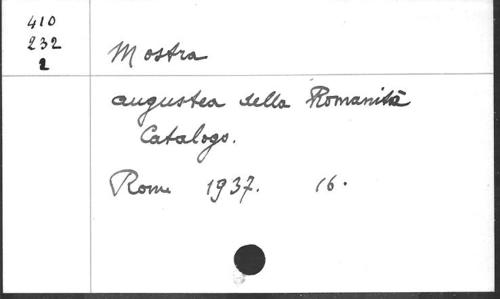 410
232
2
Mostra
augustea della Romanità
Catalogo.
Rom. 1937. 16.